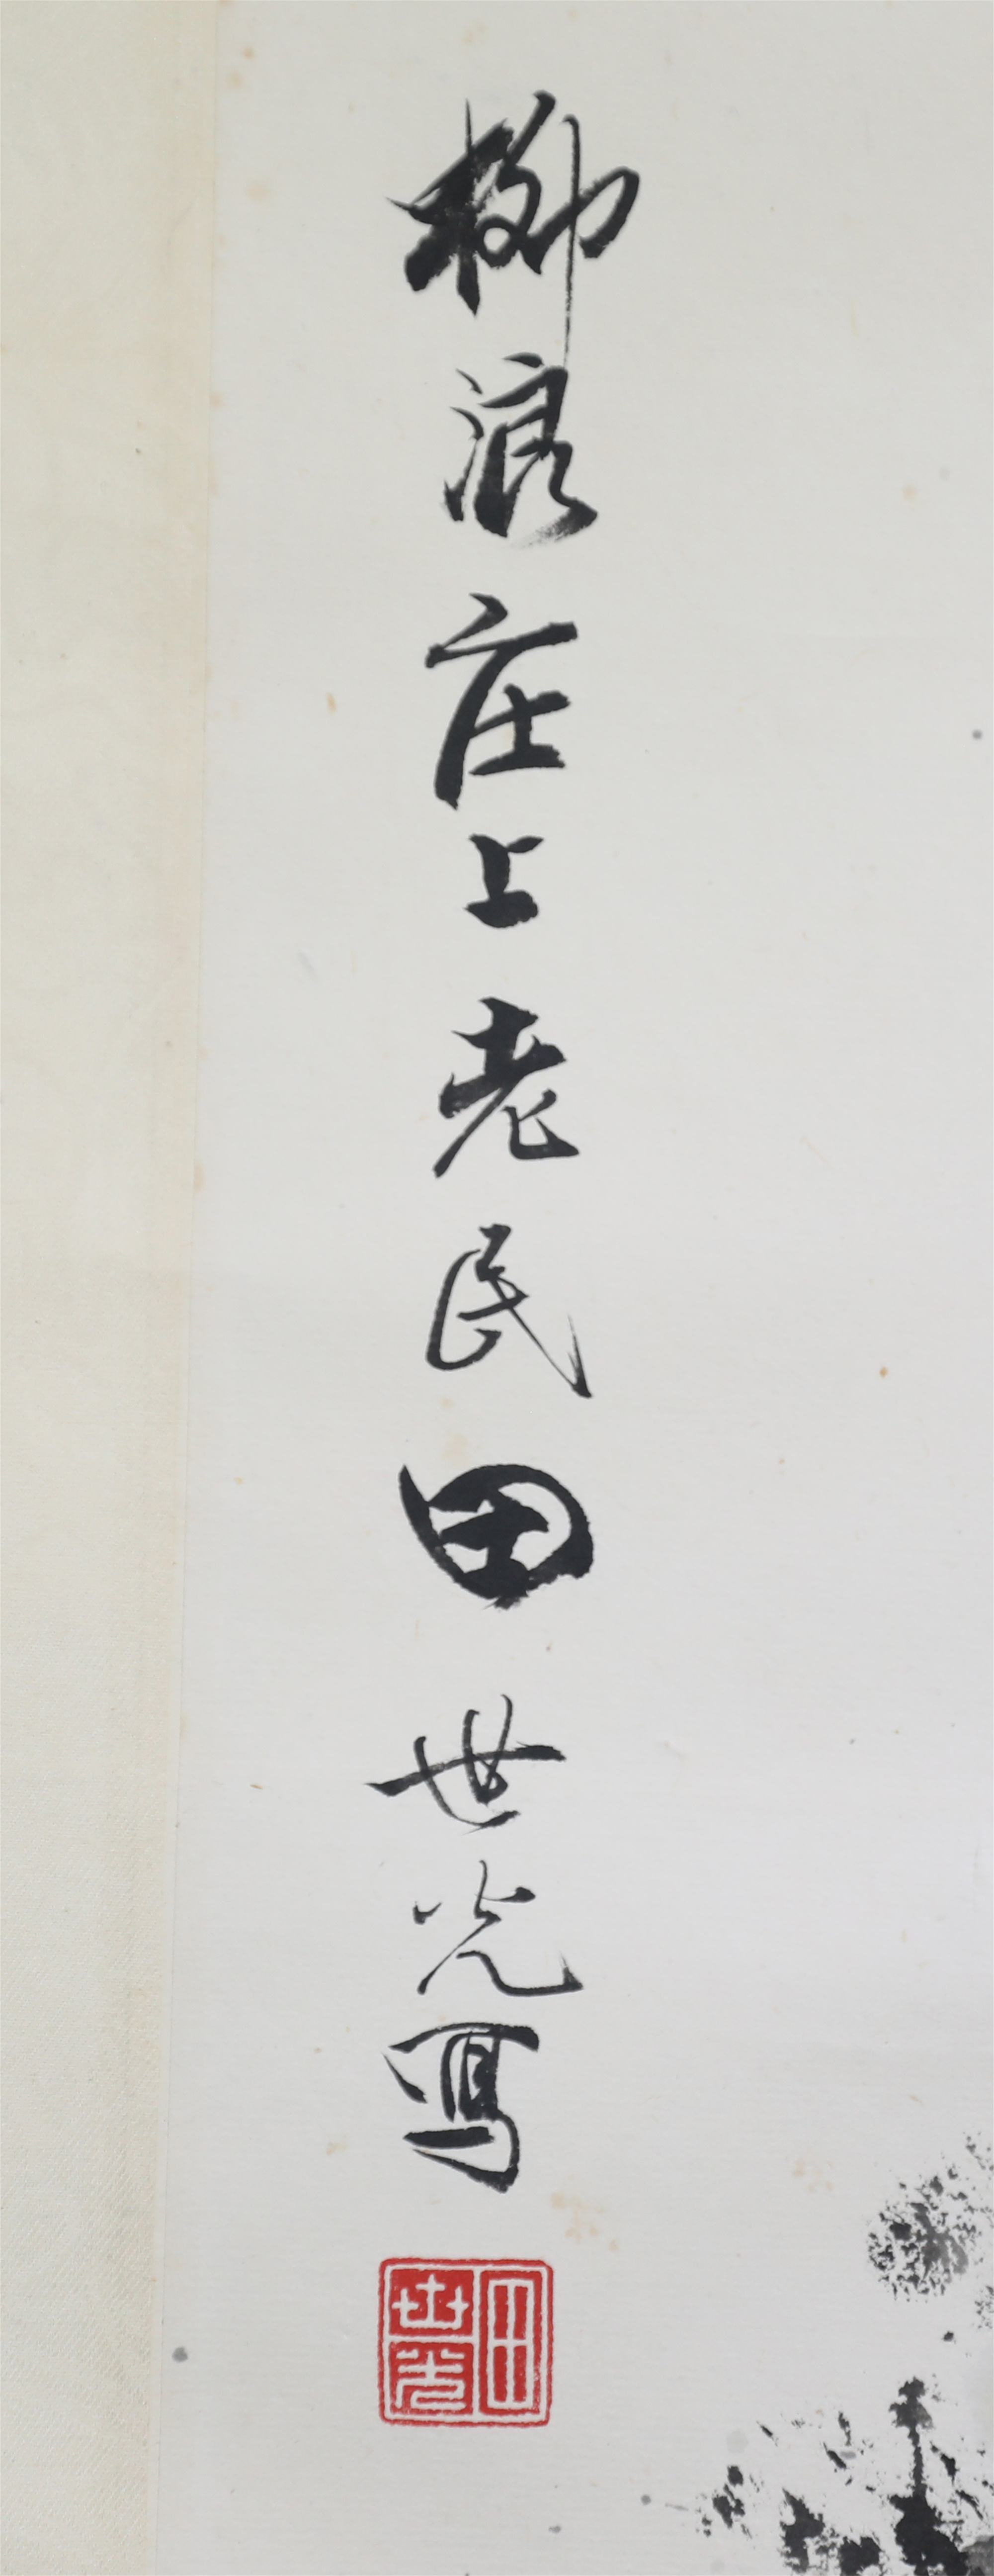 柳浪庄上老民田世光寫
田世光